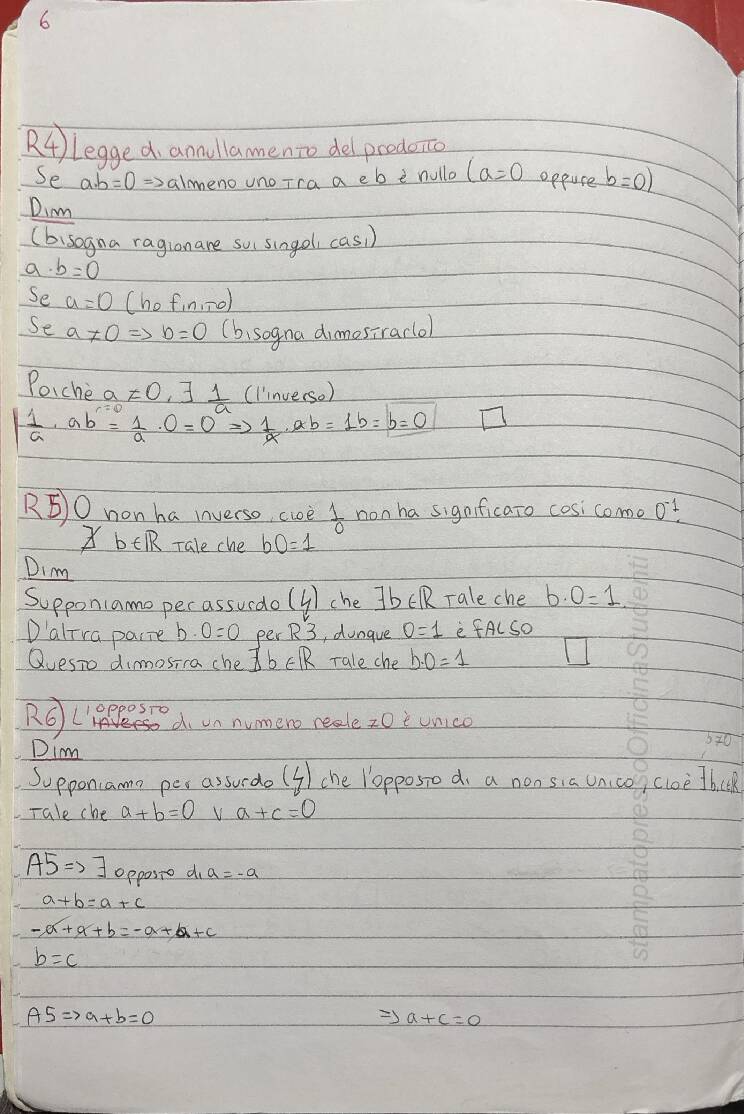 6
R4) Legge di annullamento del prodotto
Se a·b=0 => almeno uno tra a e b è nullo (a=0 oppure b=0)
Dim
(bisogna ragionare sui singoli casi)
a·b=0
Se a=0 (ho finito)
Se a≠0 => b=0 (bisogna dimostrarlo)
Poichè a≠0, ∃ 1/a (l'inverso)
1/a · ab = 1/a · 0 = 0 => 1/a · ab = 1b = b=0 □
R5) 0 non ha inverso, cioè 1/0 non ha significato così come 0⁻¹.
∄ b∈ℝ tale che b0=1
Dim
Supponiamo per assurdo (↯) che ∃b∈ℝ tale che b·0=1.
D'altra parte b·0=0 per R3, dunque 0=1 è FALSO
Questo dimostra che ∄ b∈ℝ tale che b·0=1 □
R6) L'opposto di un numero reale ≠0 è unico
Dim
b≠0
Supponiamo per assurdo (↯) che l'opposto di a non sia unico, cioè ∃b,c∈ℝ
tale che a+b=0 ∨ a+c=0
A5 => ∃ opposto di a=-a
a+b=a+c
-a+a+b=-a+a+c
b=c
A5 => a+b=0 => a+c=0
stampatopressoOfficinaStudenti